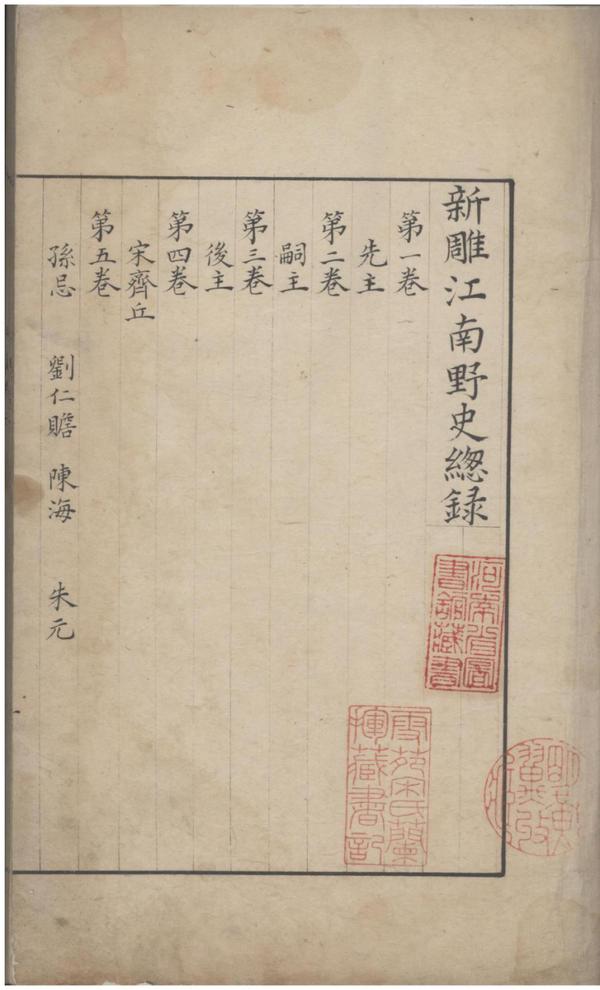 新雕江南野史總錄
第一卷
先主
第二卷
嗣主
第三卷
後主
第四卷
宋齊丘
第五卷
孫忌 劉仁贍 陳海 朱元
河南省圖
書館藏書
雪苑宋氏蘭
揮藏書記